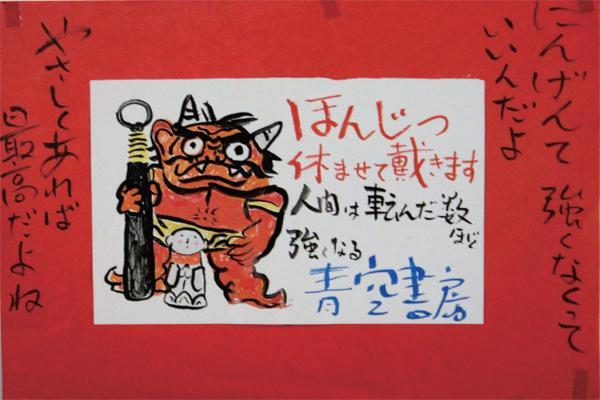 にんげんて 強くなくって
いいんだよ
ほんじつ
休ませて戴きます
人間は転んだ数ほど
強くなる
青空書房
やさしくあれば
最高だよね